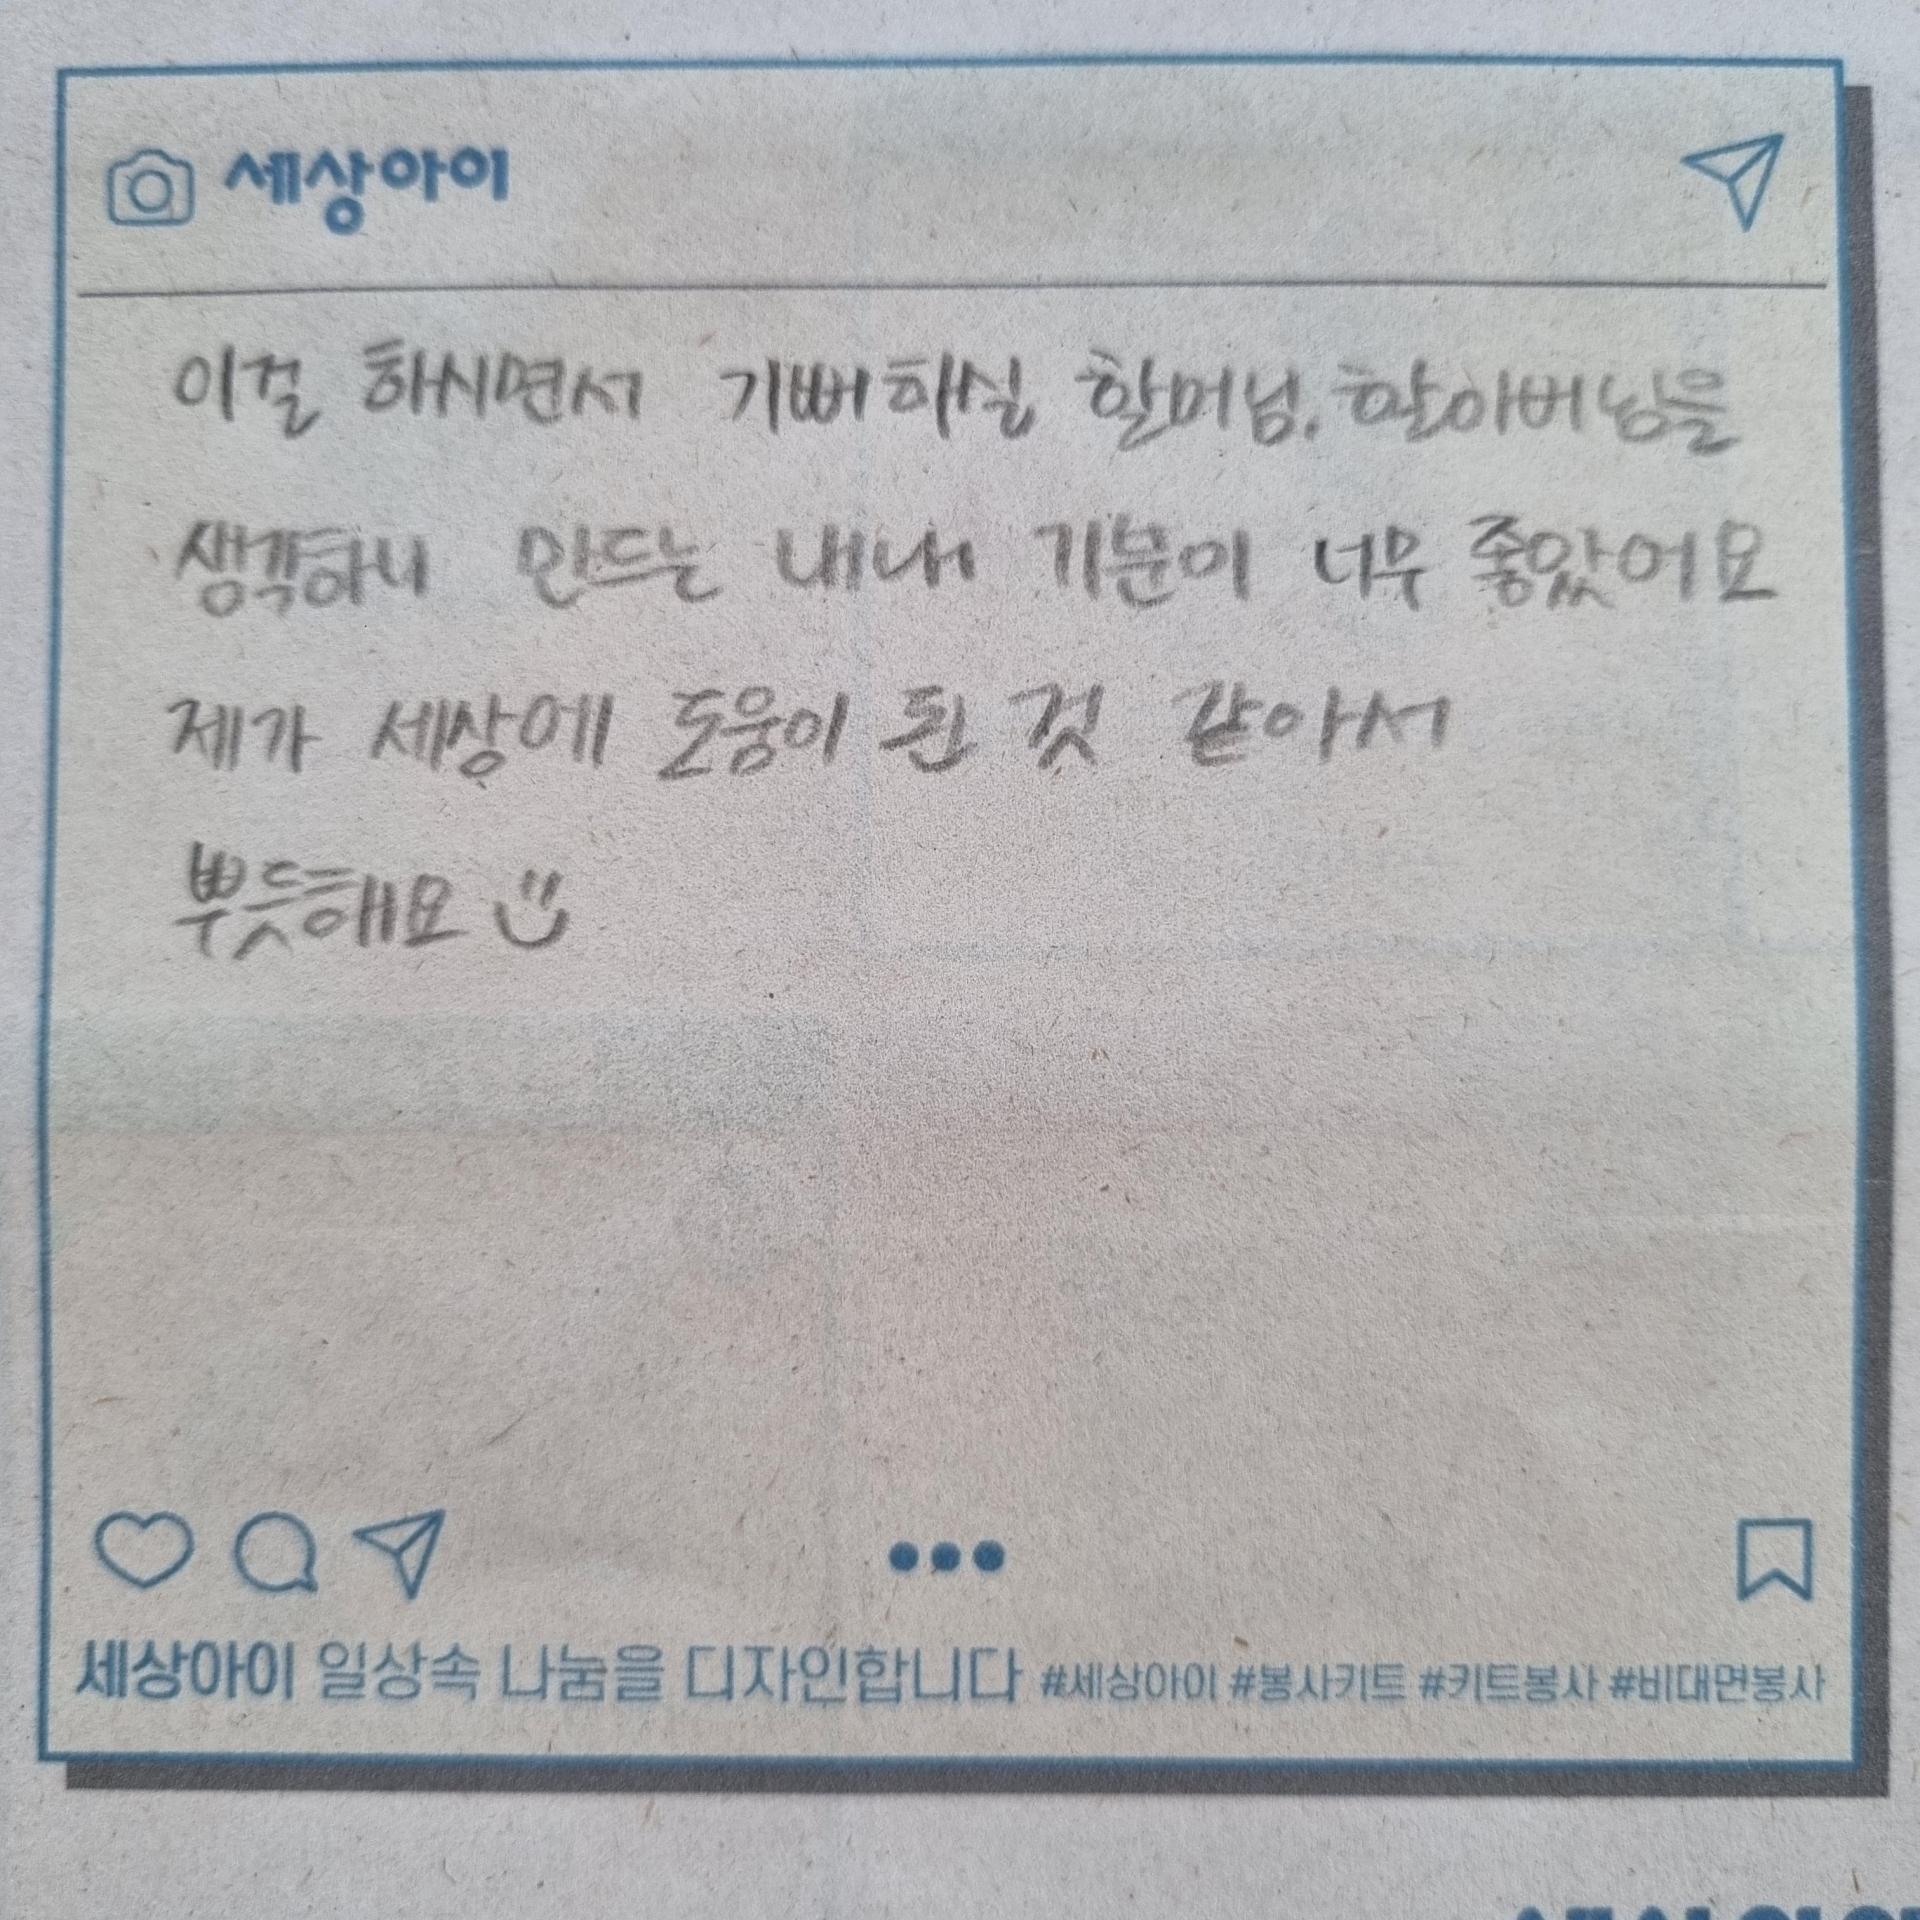 세상아이
이걸 하시면서 기뻐하실 할머님, 할아버님을
생각하니 만드는 내내 기분이 너무 좋았어요
제가 세상에 도움이 된 것 같아서
뿌듯해요
세상아이 일상속 나눔을 디자인합니다 #세상아이 #봉사키트 #키트봉사 #비대면봉사